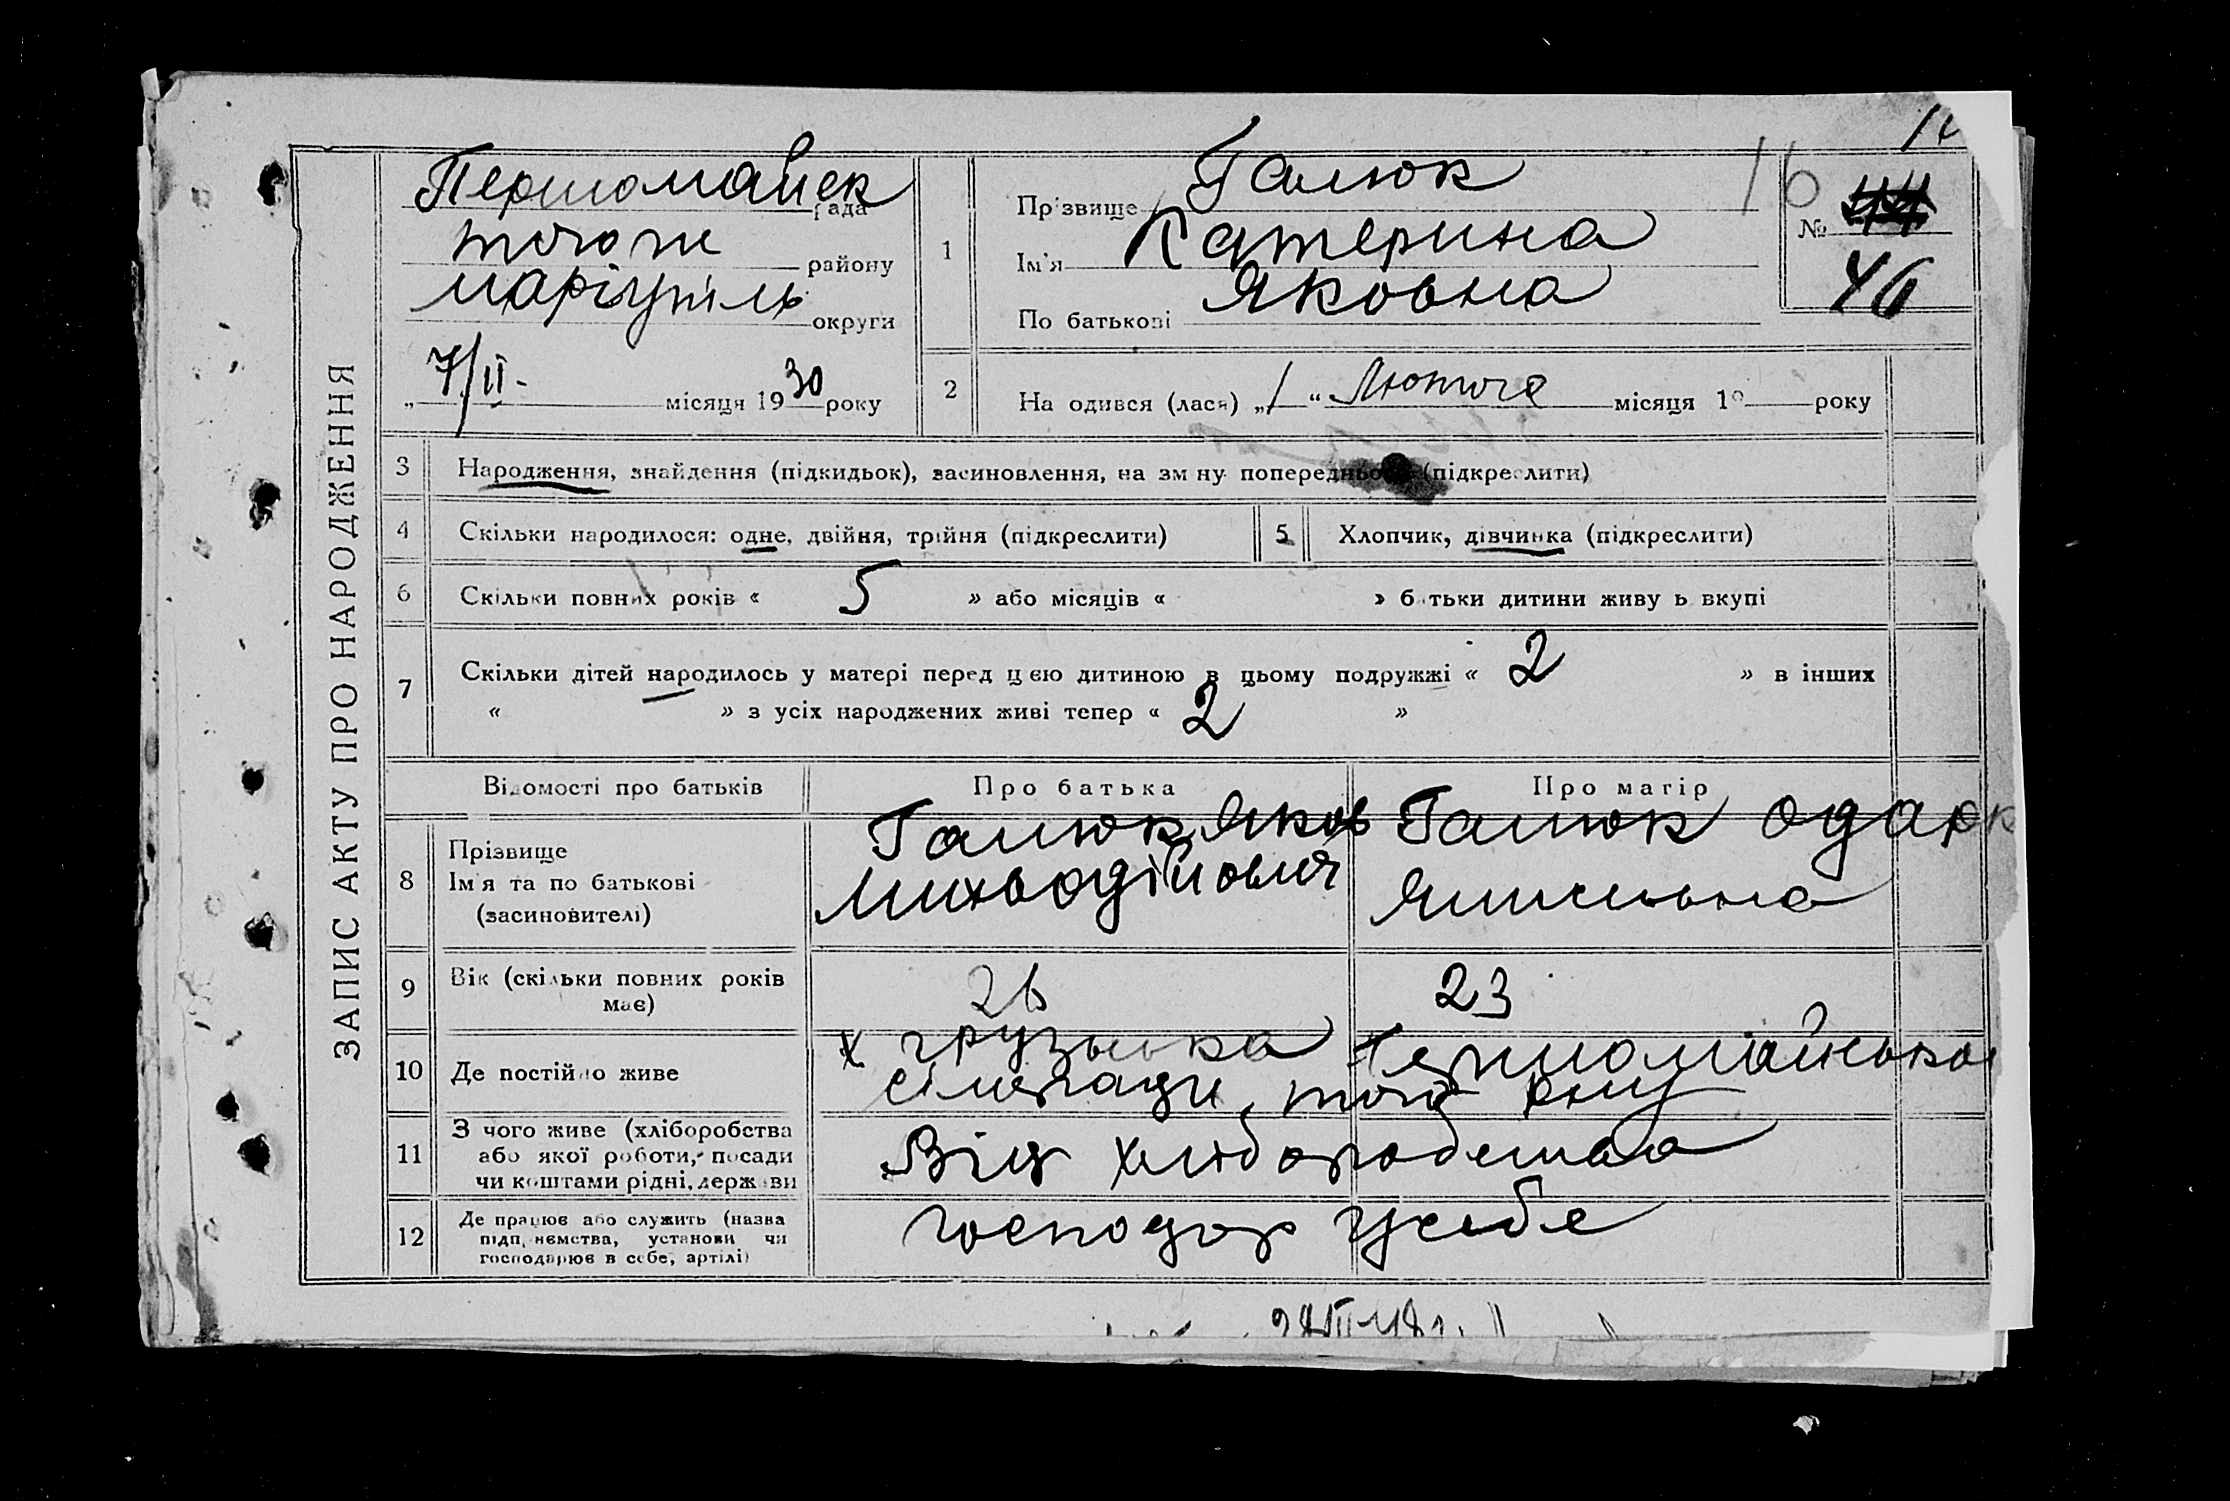 ЗАПИС АКТУ ПРО НАРОДЖЕННЯ
Першомайск рада
того ж району
маріупіль округи
7/II- місяця 1930 року
1
Прізвище Галюк
Ім'я Катерина
По батькові Яковна
16
№ 44
46
2
На одився (лася) „1“ Лютого місяця 19 року
3 Народження, знайдення (підкидьок), засиновлення, на зм ну попередньо (підкреслити)
4 Скільки народилося: одне, двійня, трійня (підкреслити)
5 Хлопчик, дівчинка (підкреслити)
6 Скільки повних років « 5 » або місяців « » б тьки дитини живу ь вкупі
7 Скільки дітей народилось у матері перед цією дитиною в цьому подружжі « 2 » в інших
« » з усіх народжених живі тепер « 2 »
Відомості про батьків Про батька Про матір
8 Прізвище
Ім'я та по батькові
(засиновителі)
Галюк Яков
Галюк Одарк
9 Вік (скільки повних років
має)
26 23
10 Де постійно живе
х грузьська Першомайської
сільради, того рну
11 З чого живе (хліборобства
або якої роботи, посади
чи коштами рідні, держави
Від хліборобства
12 Де працює або служить (назва
підп, немства, установи чи
господарює в себе, артілі)
господар усебе